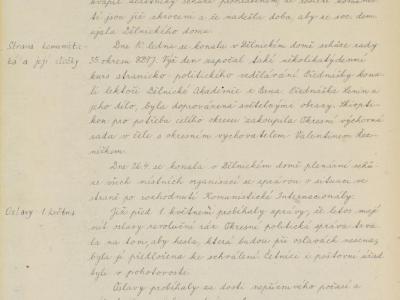 kvapil účastníky schůze prohlášením, že
ti jsou již zkroceni a že nadešla doba, aby se soc. dem.
ujala Dělnického domu.
Strana komunistic-
ká a její složky
Dne 10. ledna se konala v Dělnickém domě schůze rady
35. okresu Vyš. den započal také několikatýdenní
kurs stranicko-politického vzdělávání. Přednášky kona-
li lektoři Dělnické Akademie z Brna. Přednáška Lenin a
jeho dílo, byla doprovázena světelnými obrazy. Skiopti-
kon pro potřebu celého okresu zakoupila Okresní výchovná
rada v čele s okresním vychovatelem Valentinem
níčkem.
Dne 26.4. se konala v Dělnickém domě plenární schů-
ze všech místních organisací se zprávou o situaci ve
straně po rozhodnutí Komunistické Internacionály.
Oslavy 1. května
Již před 1. květnem probíhaly zprávy, že letos mají
mít oslavy revoluční ráz. Okresní politická správa trva-
la na tom, aby hesla, která budou při oslavách nesena,
byla jí předložena ke schválení. Četnice i poštovní úřad
byli v pohotovosti.
Oslavy probíhaly za dosti nepříznivého počasí a